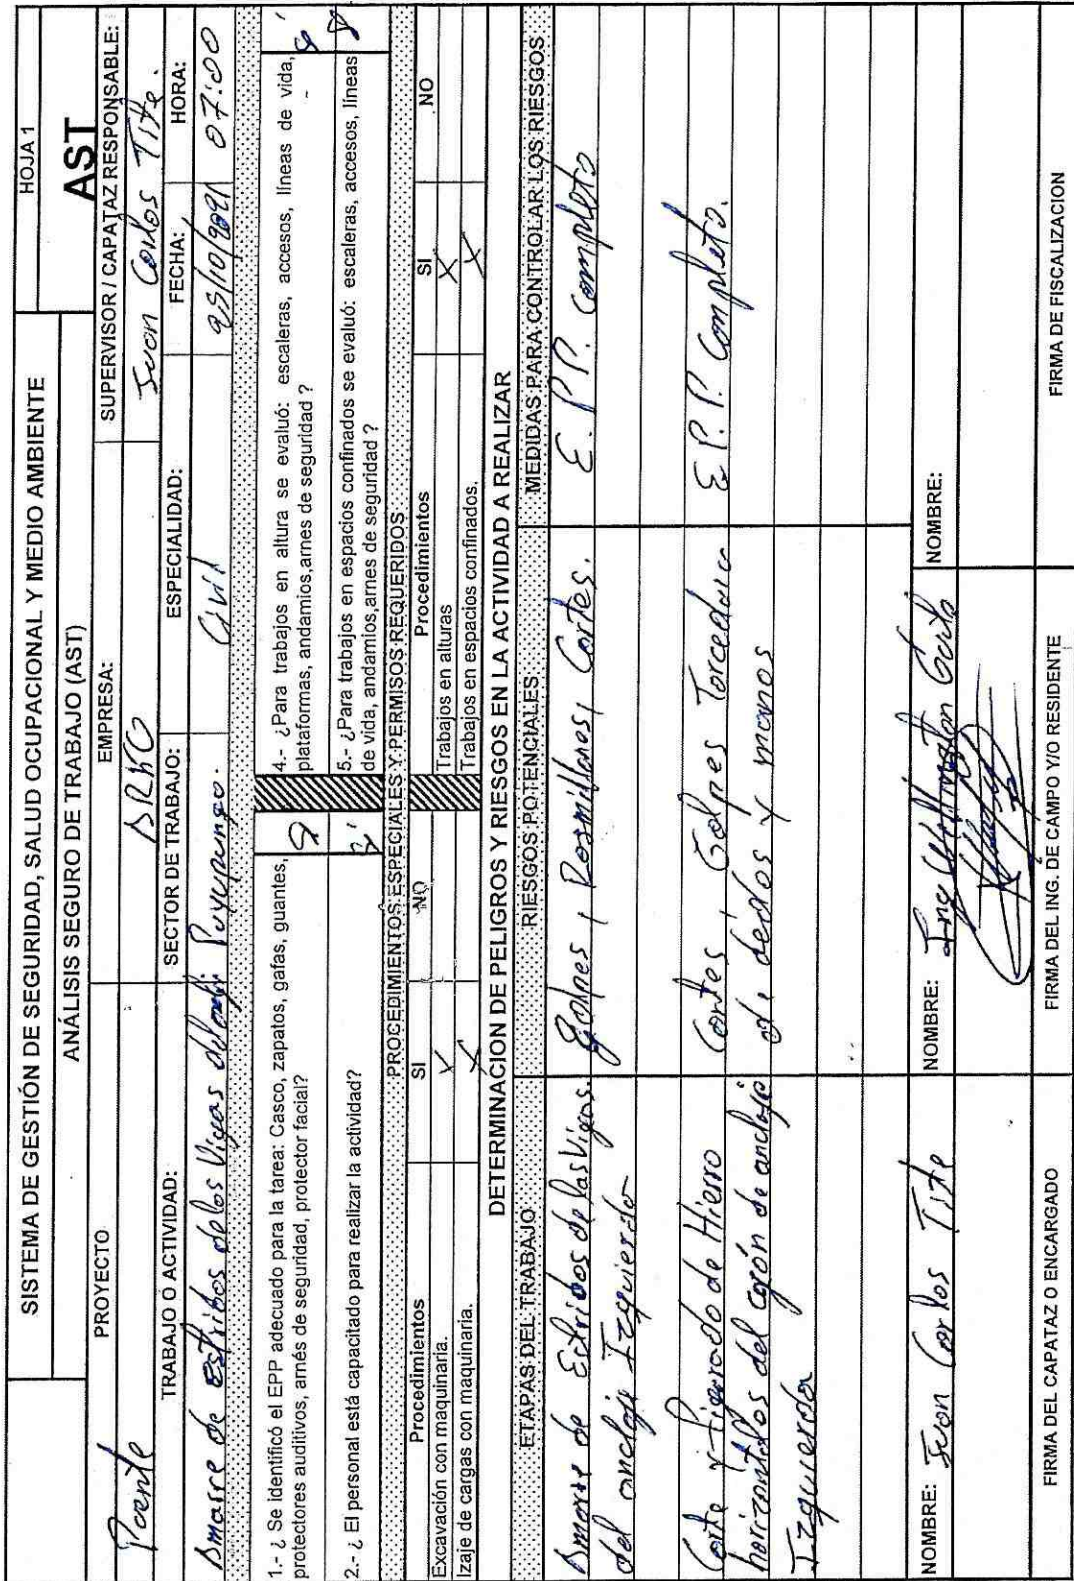 SISTEMA DE GESTIÓN DE SEGURIDAD, SALUD OCUPACIONAL Y MEDIO AMBIENTE
HOJA 1
ANÁLISIS SEGURO DE TRABAJO (AST)
AST
PROYECTO
EMPRESA:
SUPERVISOR / CAPATAZ RESPONSABLE:
Puente
Juan Carlos Tite.
TRABAJO Ó ACTIVIDAD:
SECTOR DE TRABAJO:
ESPECIALIDAD:
FECHA:
HORA:
Amarre de estribos de las Vigas del
Puyupungo.
Civil
25/10/2021
07:00
1.- ¿ Se identificó el EPP adecuado para la tarea: Casco, zapatos, gafas, guantes,
protectores auditivos, arnés de seguridad, protector facial?
2.- ¿ El personal está capacitado para realizar la actividad?
4.- ¿Para trabajos en altura se evaluó: escaleras, accesos, líneas de vida,
plataformas, andamios,arnes de seguridad ?
5.- ¿Para trabajos en espacios confinados se evaluó: escaleras, accesos, líneas
de vida, andamios,arnes de seguridad ?
PROCEDIMIENTOS ESPECIALES Y PERMISOS REQUERIDOS
Procedimientos SI NO Procedimientos SI NO
Excavación con maquinaria. X Trabajos en alturas X
Izaje de cargas con maquinaria. X Trabajos en espacios confinados. X
DETERMINACION DE PELIGROS Y RIESGOS EN LA ACTIVIDAD A REALIZAR
ETAPAS DEL TRABAJO RIESGOS POTENCIALES MEDIDAS PARA CONTROLAR LOS RIESGOS
Amarre de Estribos de las Vigas. Golpes, Rosmillones, Cortes. E.P.P. completo
del anclaje Izquierdo
Corte y figurado de Hierro Cortes, Golpes Torcedura E.P.P. Completo.
horizontales del cajón de anclaje de dedos y manos
Izquierdo
NOMBRE: Juan Carlos Tite
NOMBRE: Ing
NOMBRE:
FIRMA DEL CAPATAZ O ENCARGADO
FIRMA DEL ING. DE CAMPO Y/O RESIDENTE
FIRMA DE FISCALIZACION